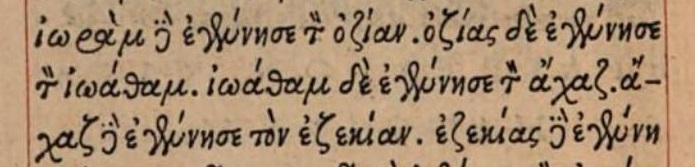 ἰωρὰμ δὲ ἐγέννησε τὸν ὀζίαν. ὀζίας δὲ ἐγέννησε
τὸν ἰωάθαμ. ἰωάθαμ δὲ ἐγέννησε τὸν ἄχαζ. ἄ-
χαζ δὲ ἐγέννησε τὸν ἐζεκίαν. ἐζεκίας δὲ ἐγέννη